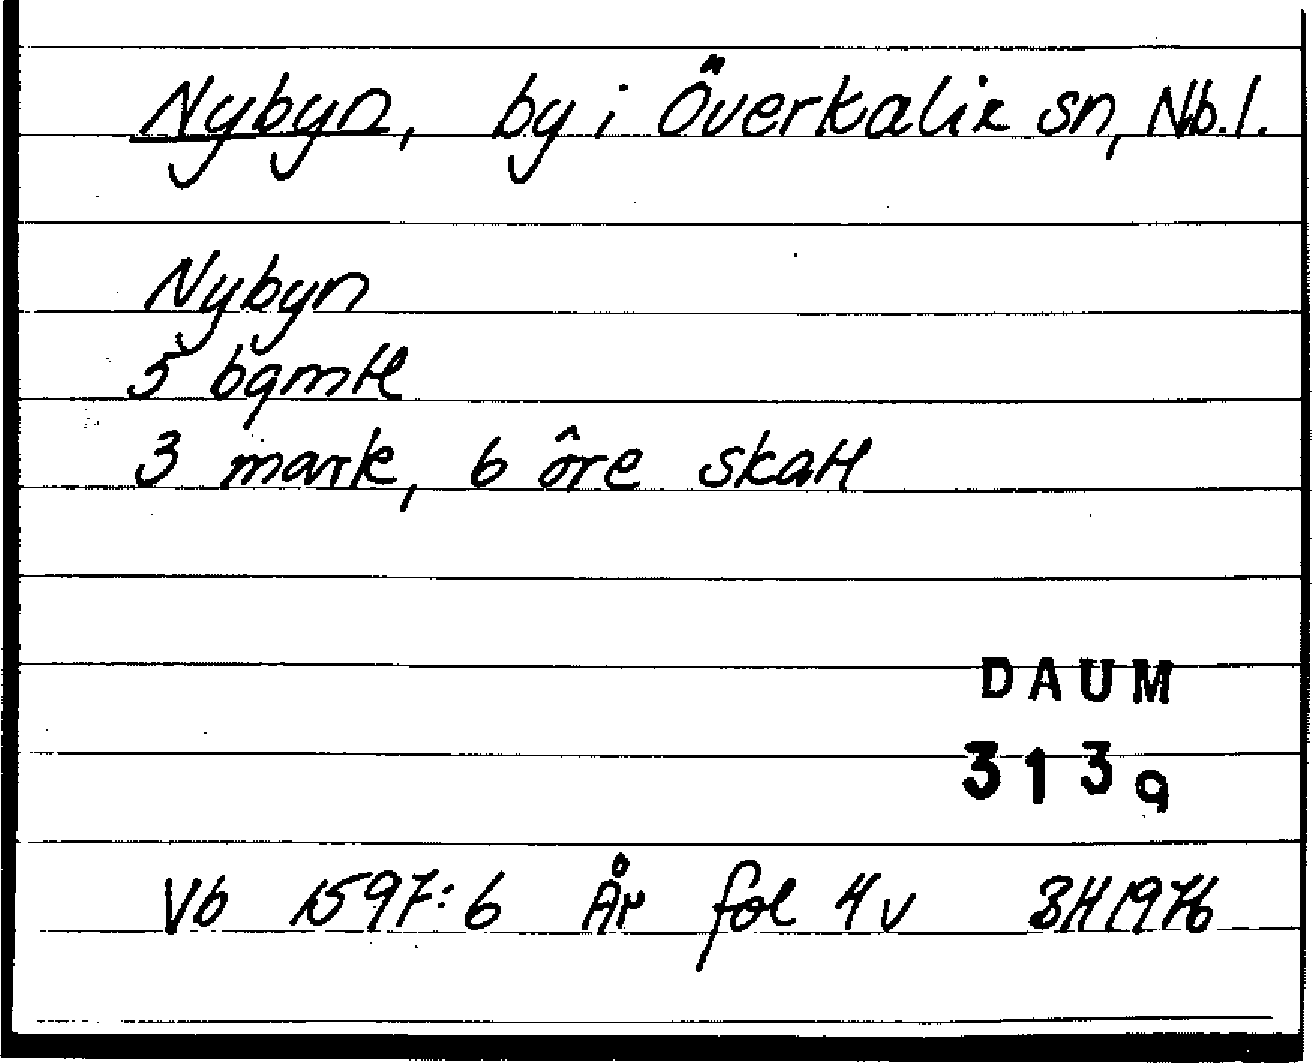 Nybyn, by i Överkalix sn, Nb.l.
Nybyn
5 bgmtl
3 mark, 6 öre skatt
DAUM
3139
Vb 1597:6 År fol 4v BH 1976